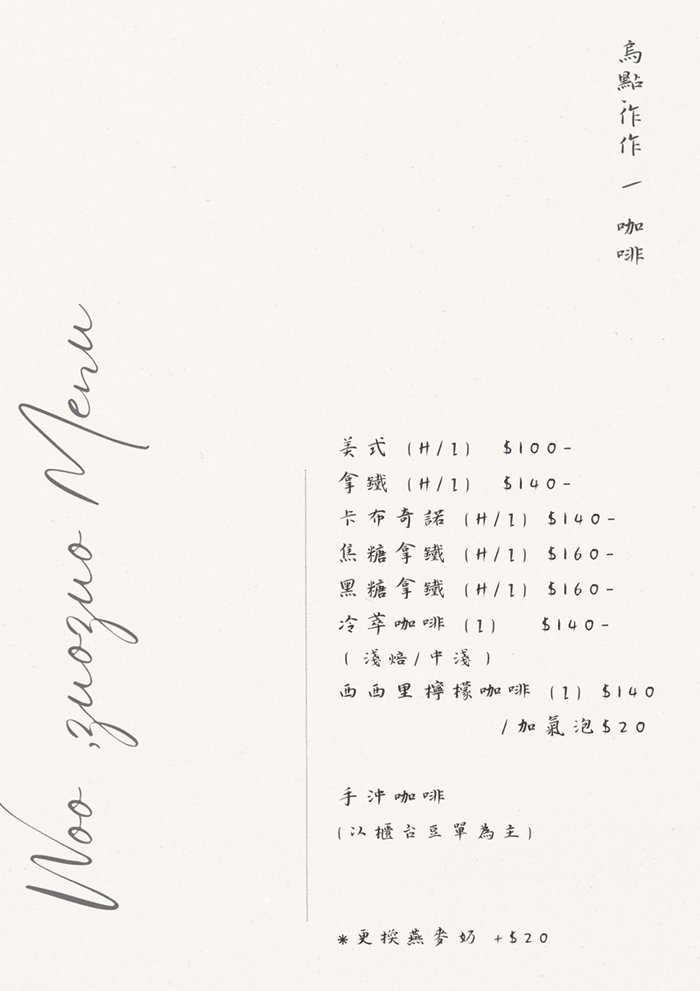 烏點作作 一 咖啡
Woo ,zuozuo Menu
美式 (H/I) $100-
拿鐵 (H/I) $140-
卡布奇諾 (H/I) $140-
焦糖拿鐵 (H/I) $160-
黑糖拿鐵 (H/I) $160-
冷萃咖啡 (I) $140-
(淺焙/中淺)
西西里檸檬咖啡 (I) $140
/加氣泡$20
手沖咖啡
(以櫃台豆單為主)
*更換燕麥奶 +$20